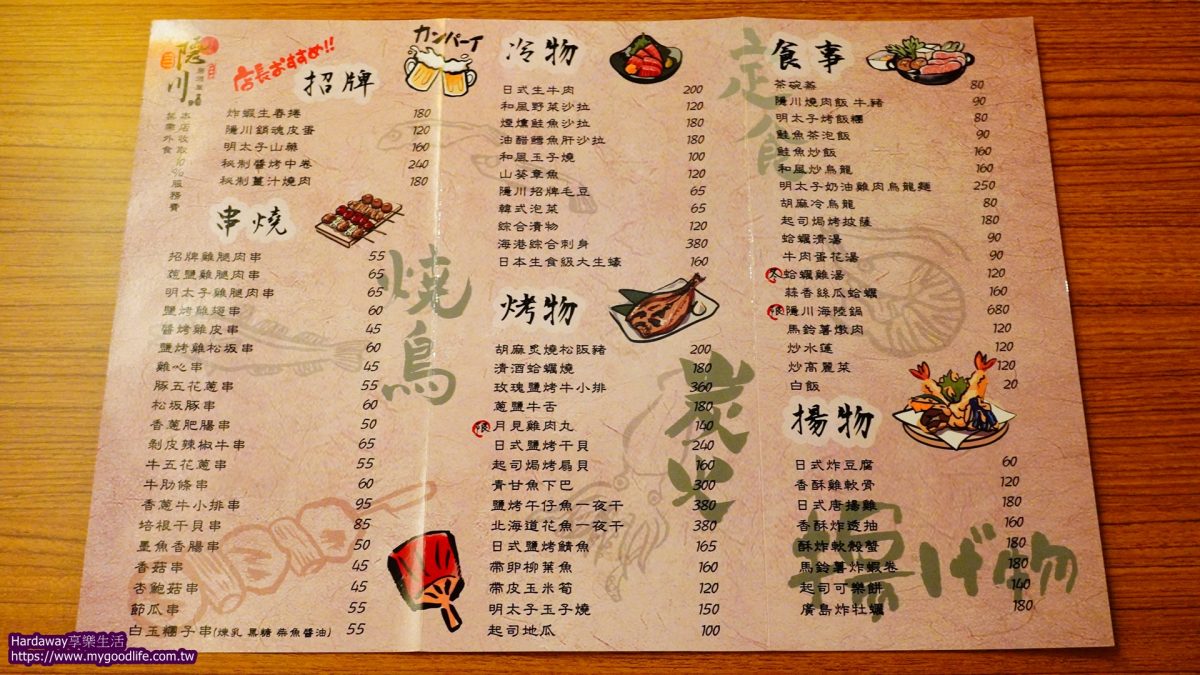 隱川
居酒屋
本店收取10%服務費
禁帶外食
店長おすすめ!!
招牌
カンパーイ
炸蝦生春捲 180
隱川銷魂皮蛋 120
明太子山藥 160
秘制醬烤中卷 240
秘制薑汁燒肉 180
串燒
燒鳥
招牌雞腿肉串 55
蔥鹽雞腿肉串 65
明太子雞腿肉串 65
鹽烤雞翅串 60
醬烤雞皮串 45
鹽烤雞松坂串 60
雞心串 45
豚五花蔥串 60
松坂豚串 60
香蔥肥腸串 50
剝皮辣椒牛串 65
牛五花蔥串 55
牛肋條串 60
香蔥牛小排串 95
培根干貝串 85
墨魚香腸串 50
香菇串 45
杏鮑菇串 45
節瓜串 55
白玉糰子串(煉乳 黑糖 柴魚醬油) 55
冷物
日式生牛肉 200
和風野菜沙拉 120
煙燻鮭魚沙拉 180
油醋鱈魚肝沙拉 180
和風玉子燒 100
山葵章魚 120
隱川招牌毛豆 65
韓式泡菜 65
綜合漬物 120
海港綜合刺身 380
日本生食級大生蠔 160
烤物
炭火
胡麻炙燒松阪豬 200
清酒蛤蠣燒 180
玫瑰鹽烤牛小排 360
蔥鹽牛舌 180
月見雞肉丸 140
日式鹽烤干貝 240
起司焗烤扇貝 160
青甘魚下巴 300
鹽烤午仔魚一夜干 380
北海道花魚一夜干 380
日式鹽烤鯖魚 165
帶卵柳葉魚 160
帶皮玉米筍 120
明太子玉子燒 150
起司地瓜 100
食事
定食
茶碗蒸 80
隱川燒肉飯 牛豬 90
明太子烤飯糰 80
鮭魚茶泡飯 90
鮭魚炒飯 160
和風炒烏龍 160
明太子奶油雞肉烏龍麵 250
胡麻冷烏龍 80
起司焗烤披薩 180
蛤蠣清湯 90
牛肉蛋花湯 90
蛤蠣雞湯 120
蒜香絲瓜蛤蠣 160
隱川海陸鍋 680
馬鈴薯燉肉 120
炒水蓮 120
炒高麗菜 120
白飯 20
揚物
揚げ物
日式炸豆腐 60
香酥雞軟骨 120
日式唐揚雞 180
香酥炸透抽 160
酥炸軟殼蟹 180
馬鈴薯炸蝦卷 180
起司可樂餅 140
廣島炸牡蠣 180
Hardaway享樂生活
https://www.mygoodlife.com.tw